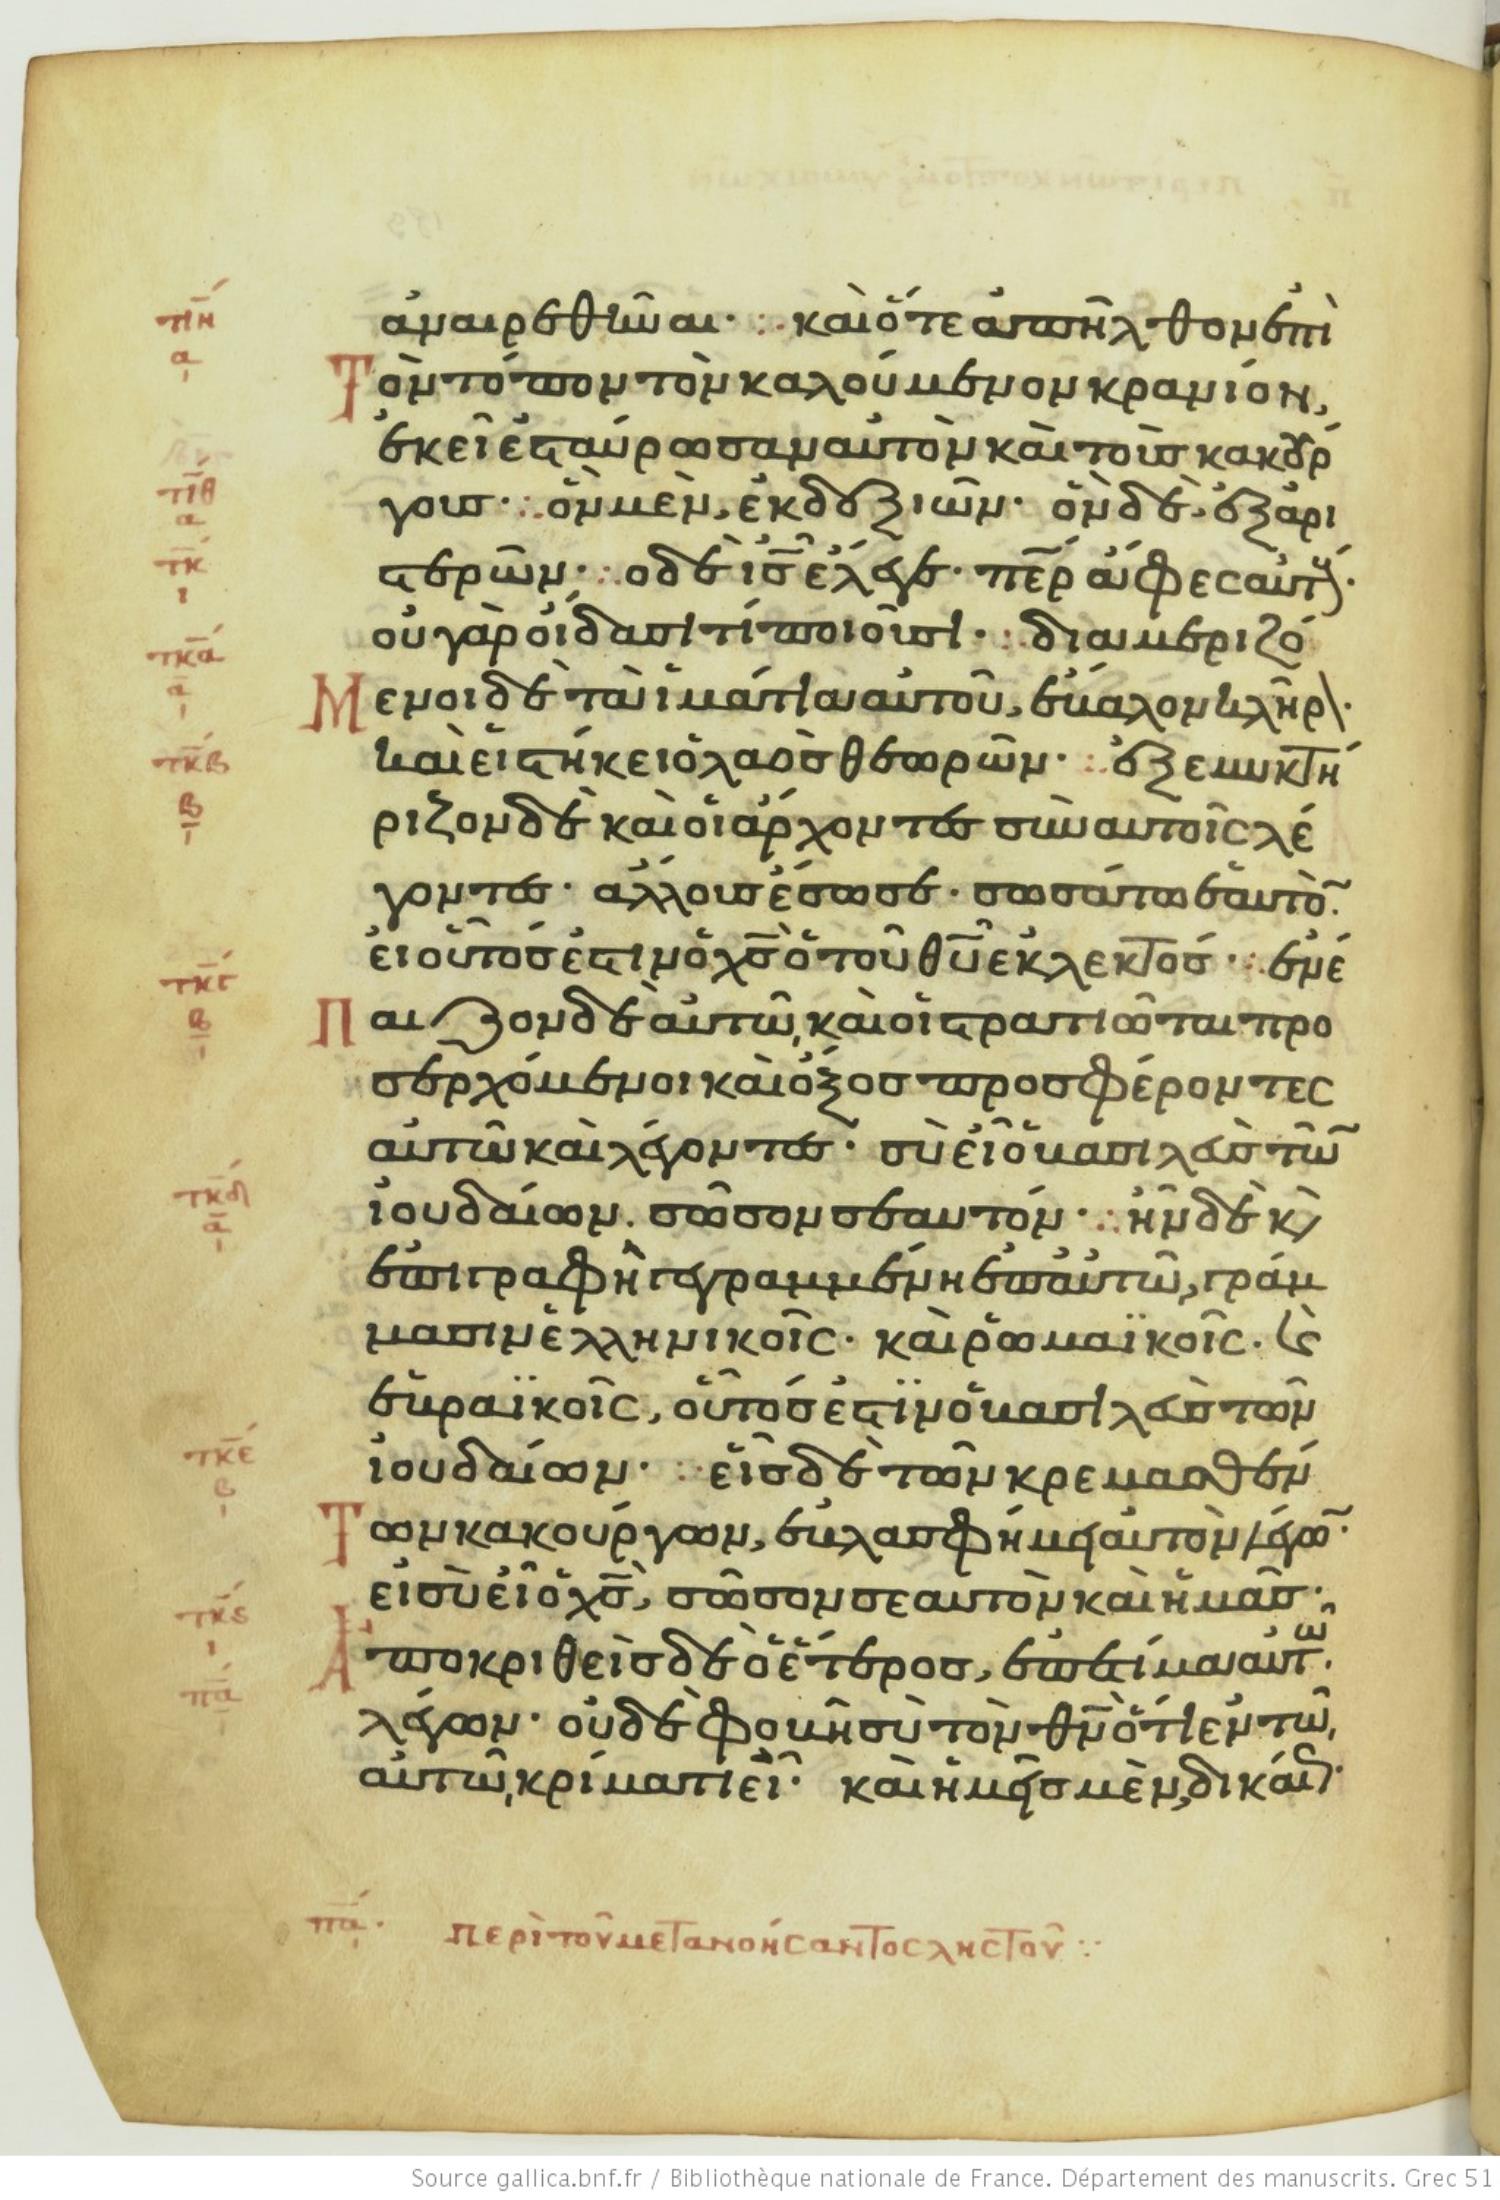 τιη
α
ἀναιρεθῆναι· καὶ ὅτε ἀπῆλθον ἐπὶ
τὸν τόπον τὸν καλούμενον κρανίον,
ἐκεῖ ἐσταύρωσαν αὐτὸν καὶ τοὺς κακούρ
τιθ
α
γους· ὃν μὲν, ἐκ δεξιῶν· ὃν δὲ, ἐξ ἀρι
τκ
ι
στερῶν· ὁ δὲ ις ἔλεγε· περ ἄφες αὐτ·
οὐ γὰρ οἴδασι τί ποιοῦσι· διαμεριζό
τκα
α
μενοι δὲ τὰ ἱμάτια αὐτοῦ, ἔβαλον κλῆρ·
τκβ
β
καὶ εἱστήκει ὁ λαὸς θεωρῶν· ἐξεμυκτή
ριζον δὲ καὶ οἱ ἄρχοντες σὺν αὐτοῖς λέ
γοντες· ἄλλους ἔσωσε· σωσάτω ἑαυτὸ·
εἰ οὗτός ἐστιν ὁ χς ὁ τοῦ θυ ἐκλεκτός· ἐνέ
τκγ
β
παιζον δὲ αὐτῶ, καὶ οἱ στρατιῶται προ
σερχόμενοι καὶ ὄξος προσφέροντες
αὐτῶ καὶ λέγοντες· σὺ εἶ ὁ βασιλεὺς τῶ
τκδ
α
ἰουδαίων. σῶσον σεαυτόν· ἦν δὲ κ
ἐπιγραφὴ γεγραμμένη ἐπ' αὐτῶ, γράμ
μασιν ἑλληνικοῖς· καὶ ῥωμαϊκοῖς· κ
ἑβραϊκοῖς, οὗτός ἐστϊν ὁ βασιλεὺς τῶν
τκε
β
ἰουδαίων· εἷς δὲ τῶν κρεμασθέν
των κακούργων, ἐβλασφήμει αὐτὸν λέγω·
τκς
ι
εἰ σὺ εἶ ὁ χς, σῶσον σεαυτὸν καὶ ἡμᾶς·
ἀποκριθεὶς δὲ ὁ ἕτερος, ἐπετίμα αὐτω·
πα
λέγων· οὐδὲ φοβῆ σὺ τὸν θν ὅτι ἐν τῶ
αὐτῶ, κρίματι εἶ· καὶ ἡμεῖς μὲν, δικαί·
πα· περὶ τοῦ μετανοήσαντος ληστοῦ
Source gallica.bnf.fr / Bibliothèque nationale de France. Département des manuscrits. Grec 51